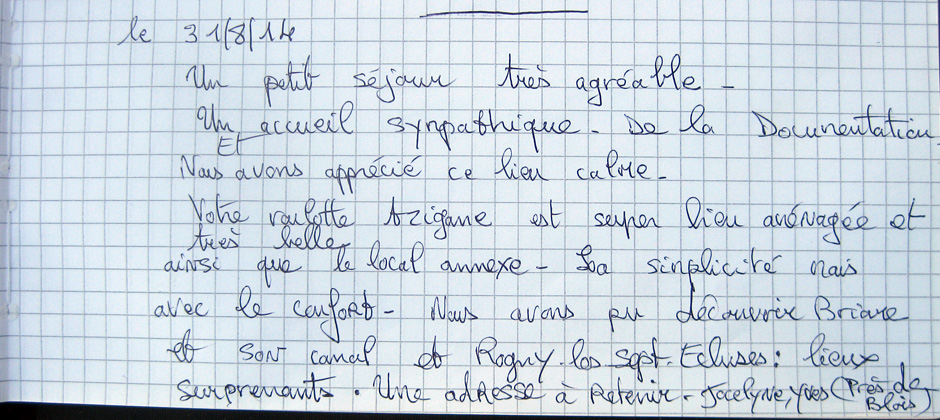 le 31/8/14
Un petit séjour très agréable -
Un accueil sympathique - De la Documentation
Et
Nous avons apprécié ce lieu calme -
Votre roulotte tzigane est super bien aménagée et
très belle
ainsi que le local annexe - La simplicité mais
avec le confort - Nous avons pu découvrir Briare
et son canal et Rogny-les-sept-Ecluses : lieux
surprenants. Une adresse à retenir - Jocelyne, Yves (Près de
Blois)